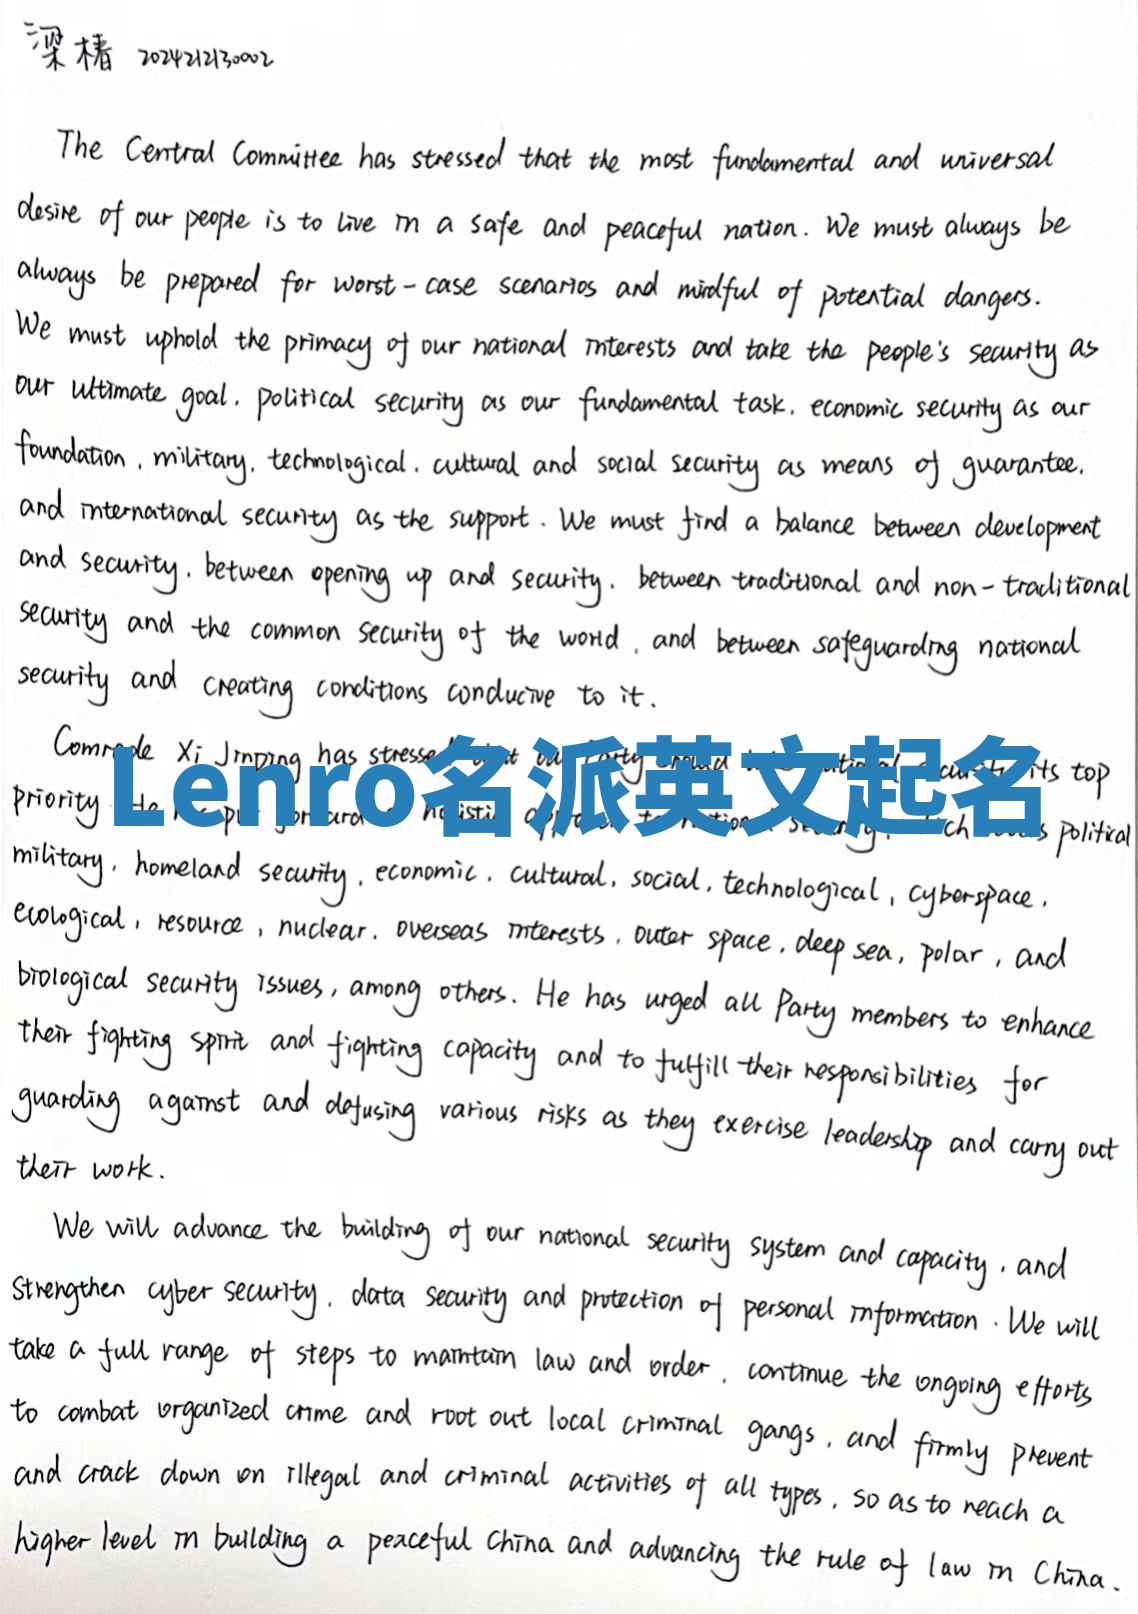 梁椿 2024212130002
The Central Committee has stressed that the most fundamental and universal
desire of our people is to live in a safe and peaceful nation. We must always be
always be prepared for worst-case scenarios and mindful of potential dangers.
We must uphold the primacy of our national interests and take the people's security as
our ultimate goal, political security as our fundamental task, economic security as our
foundation, military, technological, cultural and social security as means of guarantee,
and international security as the support. We must find a balance between development
and security, between opening up and security, between traditional and non-traditional
security and the common security of the world, and between safeguarding national
security and creating conditions conducive to it.
Comrade Xi Jinping has stressed its top
priority political
Lenro名派英文起名
military, homeland security, economic, cultural, social, technological, cyberspace,
ecological, resource, nuclear, overseas interests, outer space, deep sea, polar, and
biological security issues, among others. He has urged all Party members to enhance
their fighting spirit and fighting capacity and to fulfill their responsibilities for
guarding against and defusing various risks as they exercise leadership and carry out
their work.
We will advance the building of our national security system and capacity, and
strengthen cyber security, data security and protection of personal information. We will
take a full range of steps to maintain law and order, continue the ongoing efforts
to combat organized crime and root out local criminal gangs, and firmly prevent
and crack down on illegal and criminal activities of all types, so as to reach a
higher level in building a peaceful China and advancing the rule of law in China.